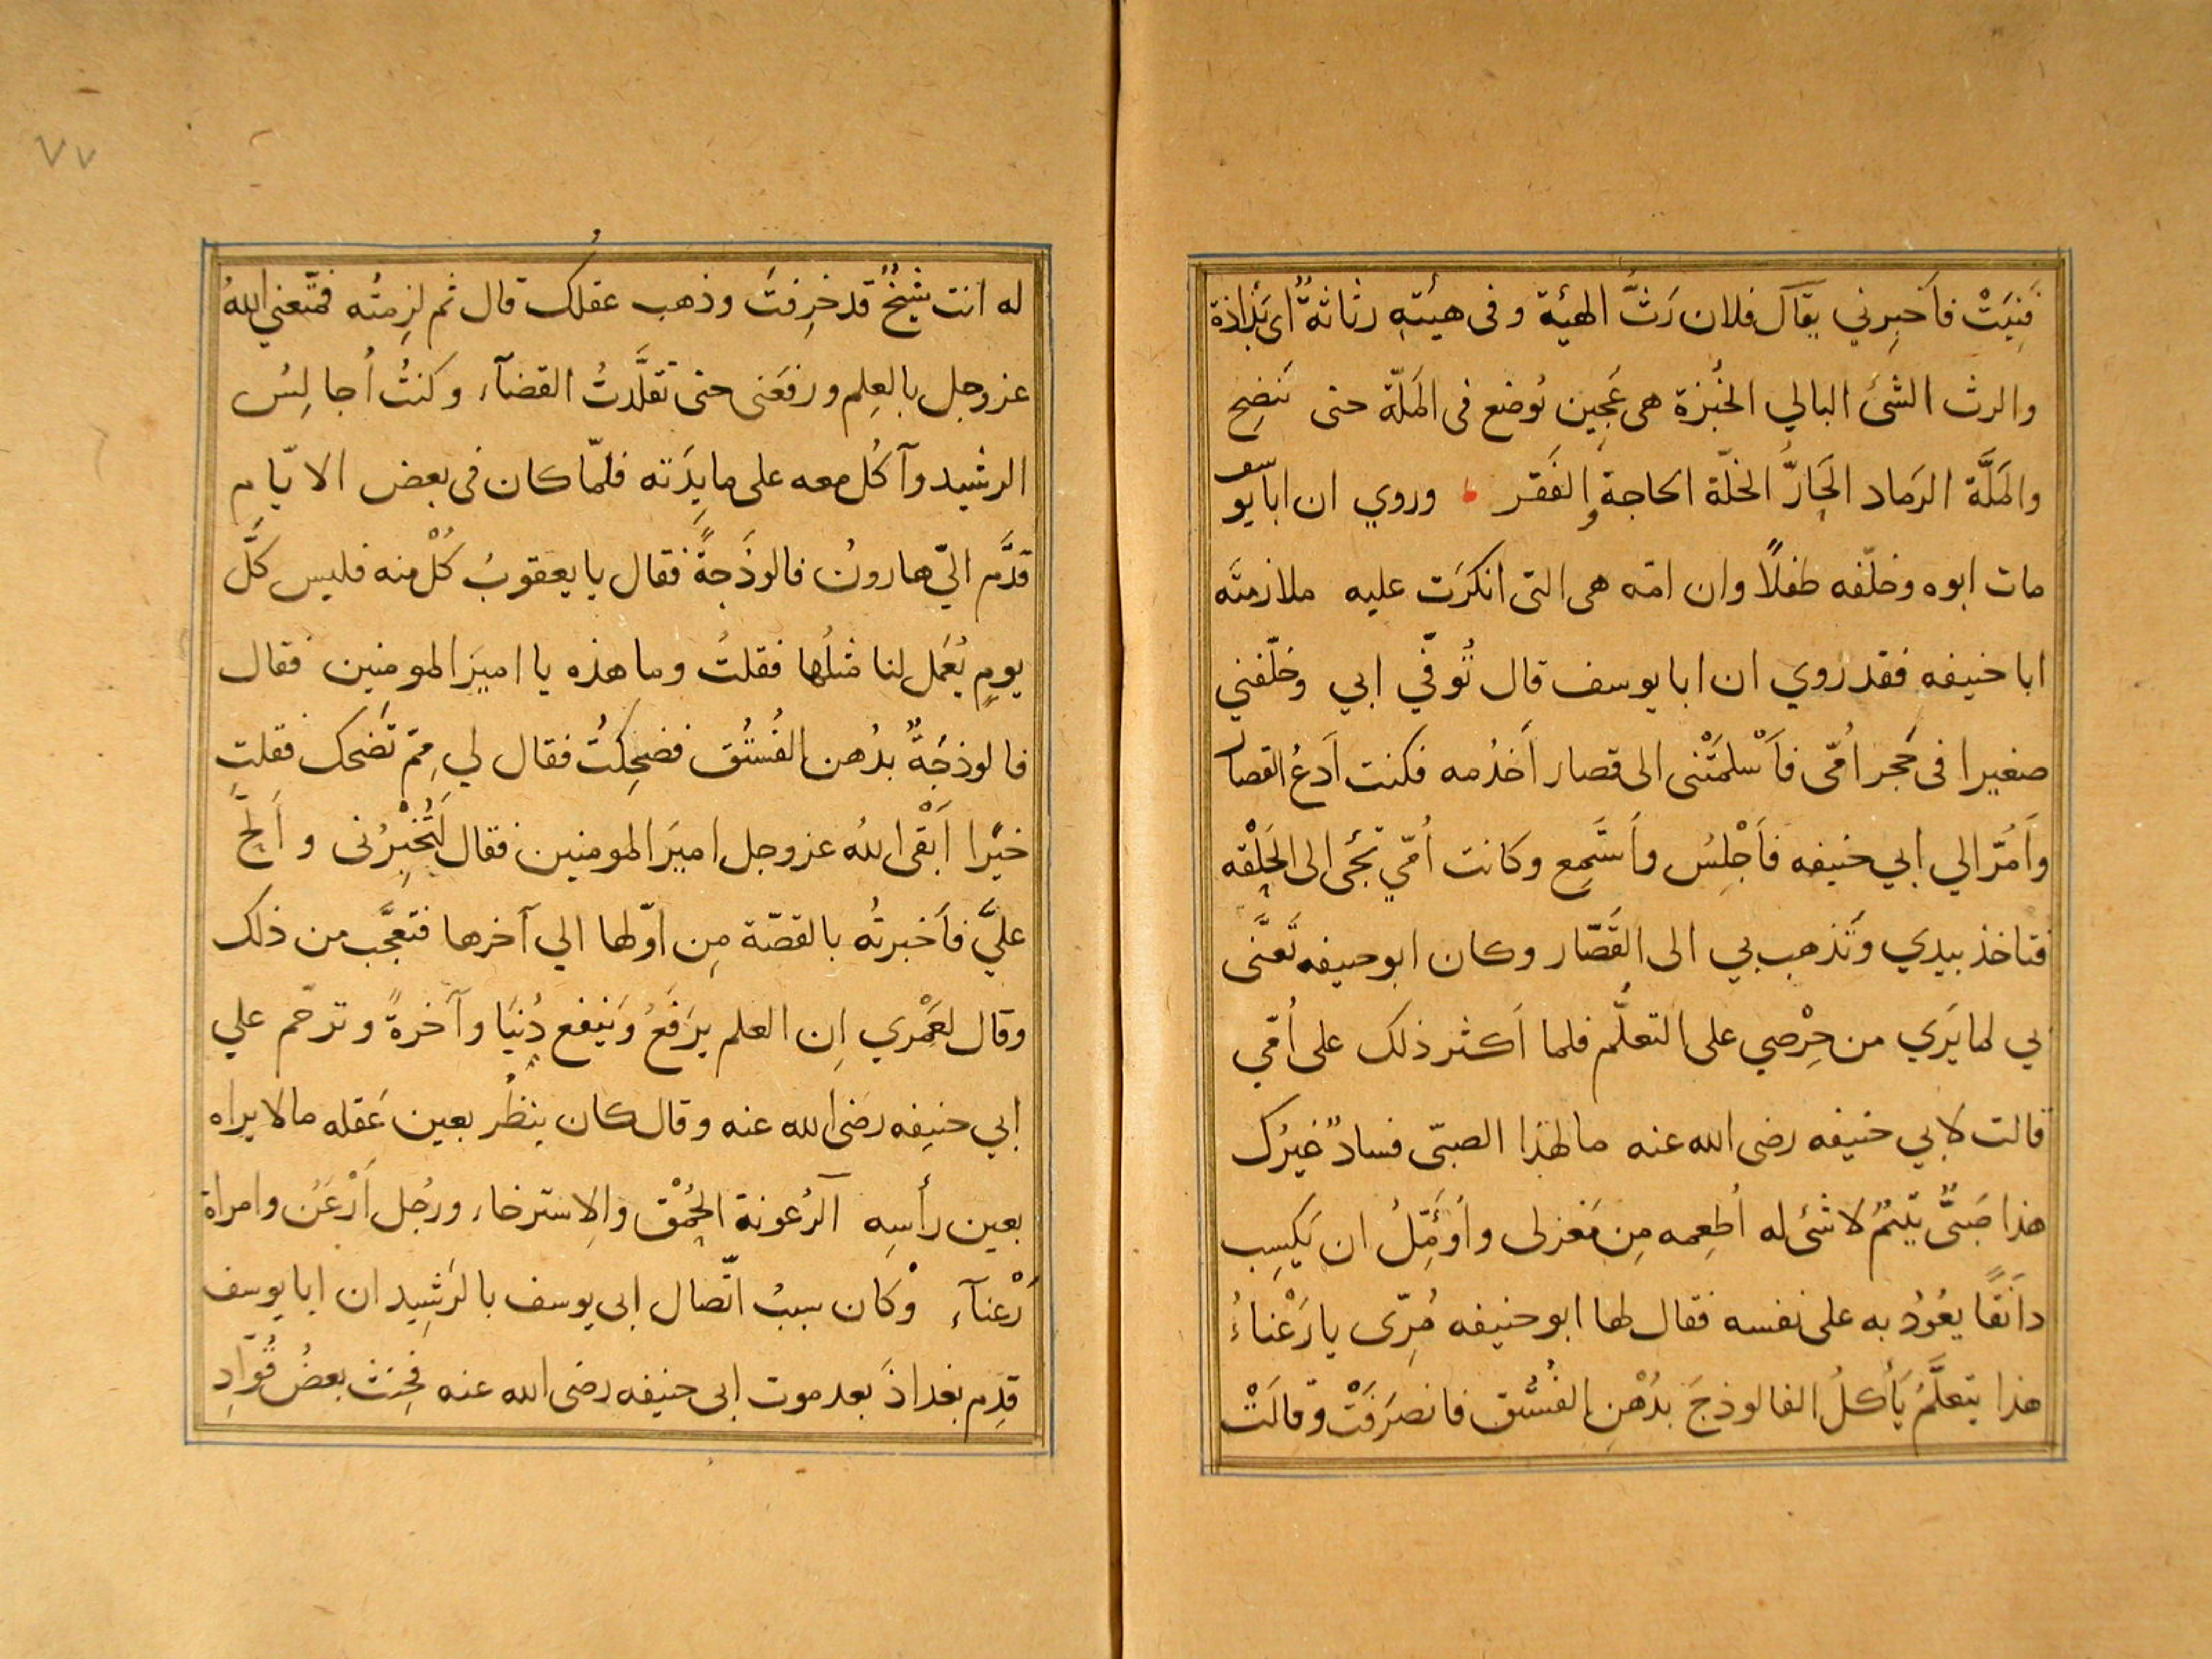 فَنِيَتْ فاَخبِرني يقآل فلان رَثُّ الهيئة وفى هيئتِهِ رثاثةٌ اى بَذاذة
والرث الشئ البالي الخُبزة هى عَجِين يُوضع فى المَلّة حتى تَنضِج
والمَلَّة الرَماد الحَارُّ الخلّة الحاجة والفَقر وروي ان ابا يوسف
مات ابوه وخلّفه طفلًا وان امّه هى التى انكرَت عليه ملازمتَه
ابا حنيفه فقد روي ان ابا يوسف قال تُوفّي ابي وخلّفني
صغيرا فى حَجر اُمّى فاَسْلمَتْنى الى قصار اَخدُمه فكنت اَدعُ القصار
واَمُرّ الي ابي حنيفه فاَجْلِسُ واَستَمِع وكانت اُمّي تجئ الى الحَلْقه
فتاخذ بيدي وتَذهب بي الى القَصّار وكان ابو حنيفه تَعنَّى
بي لما يَري من حِرْصي على التعلُّم فلما اَكثر ذلك على اُمّي
قالت لابي حنيفه رضى الله عنه ما لهذا الصبّى فسادٌ غيرُك
هذا صَبىٌّ يَتيمٌ لا شئ له اُطعِمه مِن مَغزلى واُؤَمِّلُ ان يَكسِب
دانَقًا يعُودُ به على نفسه فقال لها ابو حنيفه مُرّى يا رَعْناءُ
هذا يتعلَّمُ يَأكلُ الفالوذجَ بدُهْنِ الفُستُق فانصَرَفَتْ وقالَتْ
٧٧
له انت شيخٌ قد خرِفتَ وذهب عقلُك قال ثم لزِمتُه فمتّعني اللهُ
عز وجل بالعِلم ورفعَنى حتى تقلَّدتُ القضآء وكنتُ اُجالِسُ
الرشيد وآكُل معه على مايِدَته فلمّا كان فى بعض الايّام
قدَّم اليّ هارونُ فالوذَجةً فقال يا يعقوبُ كُلْ منه فليس كلَّ
يومٍ يُعمَل لنا مثلُها فقلتُ وما هذه يا اميرَ المومنين فقال
فالوذجَةٌ بدُهن الفُستُق فضحِكتُ فقال لي مِمّ تَضحك فقلت
خيرًا اَبْقى اللهُ عز وجل اميرَ المومنين فقال لَتُخْبِرُنى واَلَحَّ
عليَّ فاَخبرتُه بالقصّة مِن اوّلها الي آخرها فتعجَّب من ذلك
وقال لعَمْري اِن العلم يرَفَعُ وَينفع دُنيَا وآخرةً وترحّم علي
ابي حنِيفه رضَى الله عنه وقال كان ينظُر بعين عَقله ما لا يراه
بعين رأسِه آلرُعونة الحُمْق والاِسترخاء ورجُل اَرْعَن وامراة
رَعْنآء وكان سببُ اتّصال ابى يوسف بالرَشِيد ان ابا يوسف
قدِم بغداذَ بعد موت ابى حنيفه رضى الله عنه فحِنث بعضُ قُوّادِ